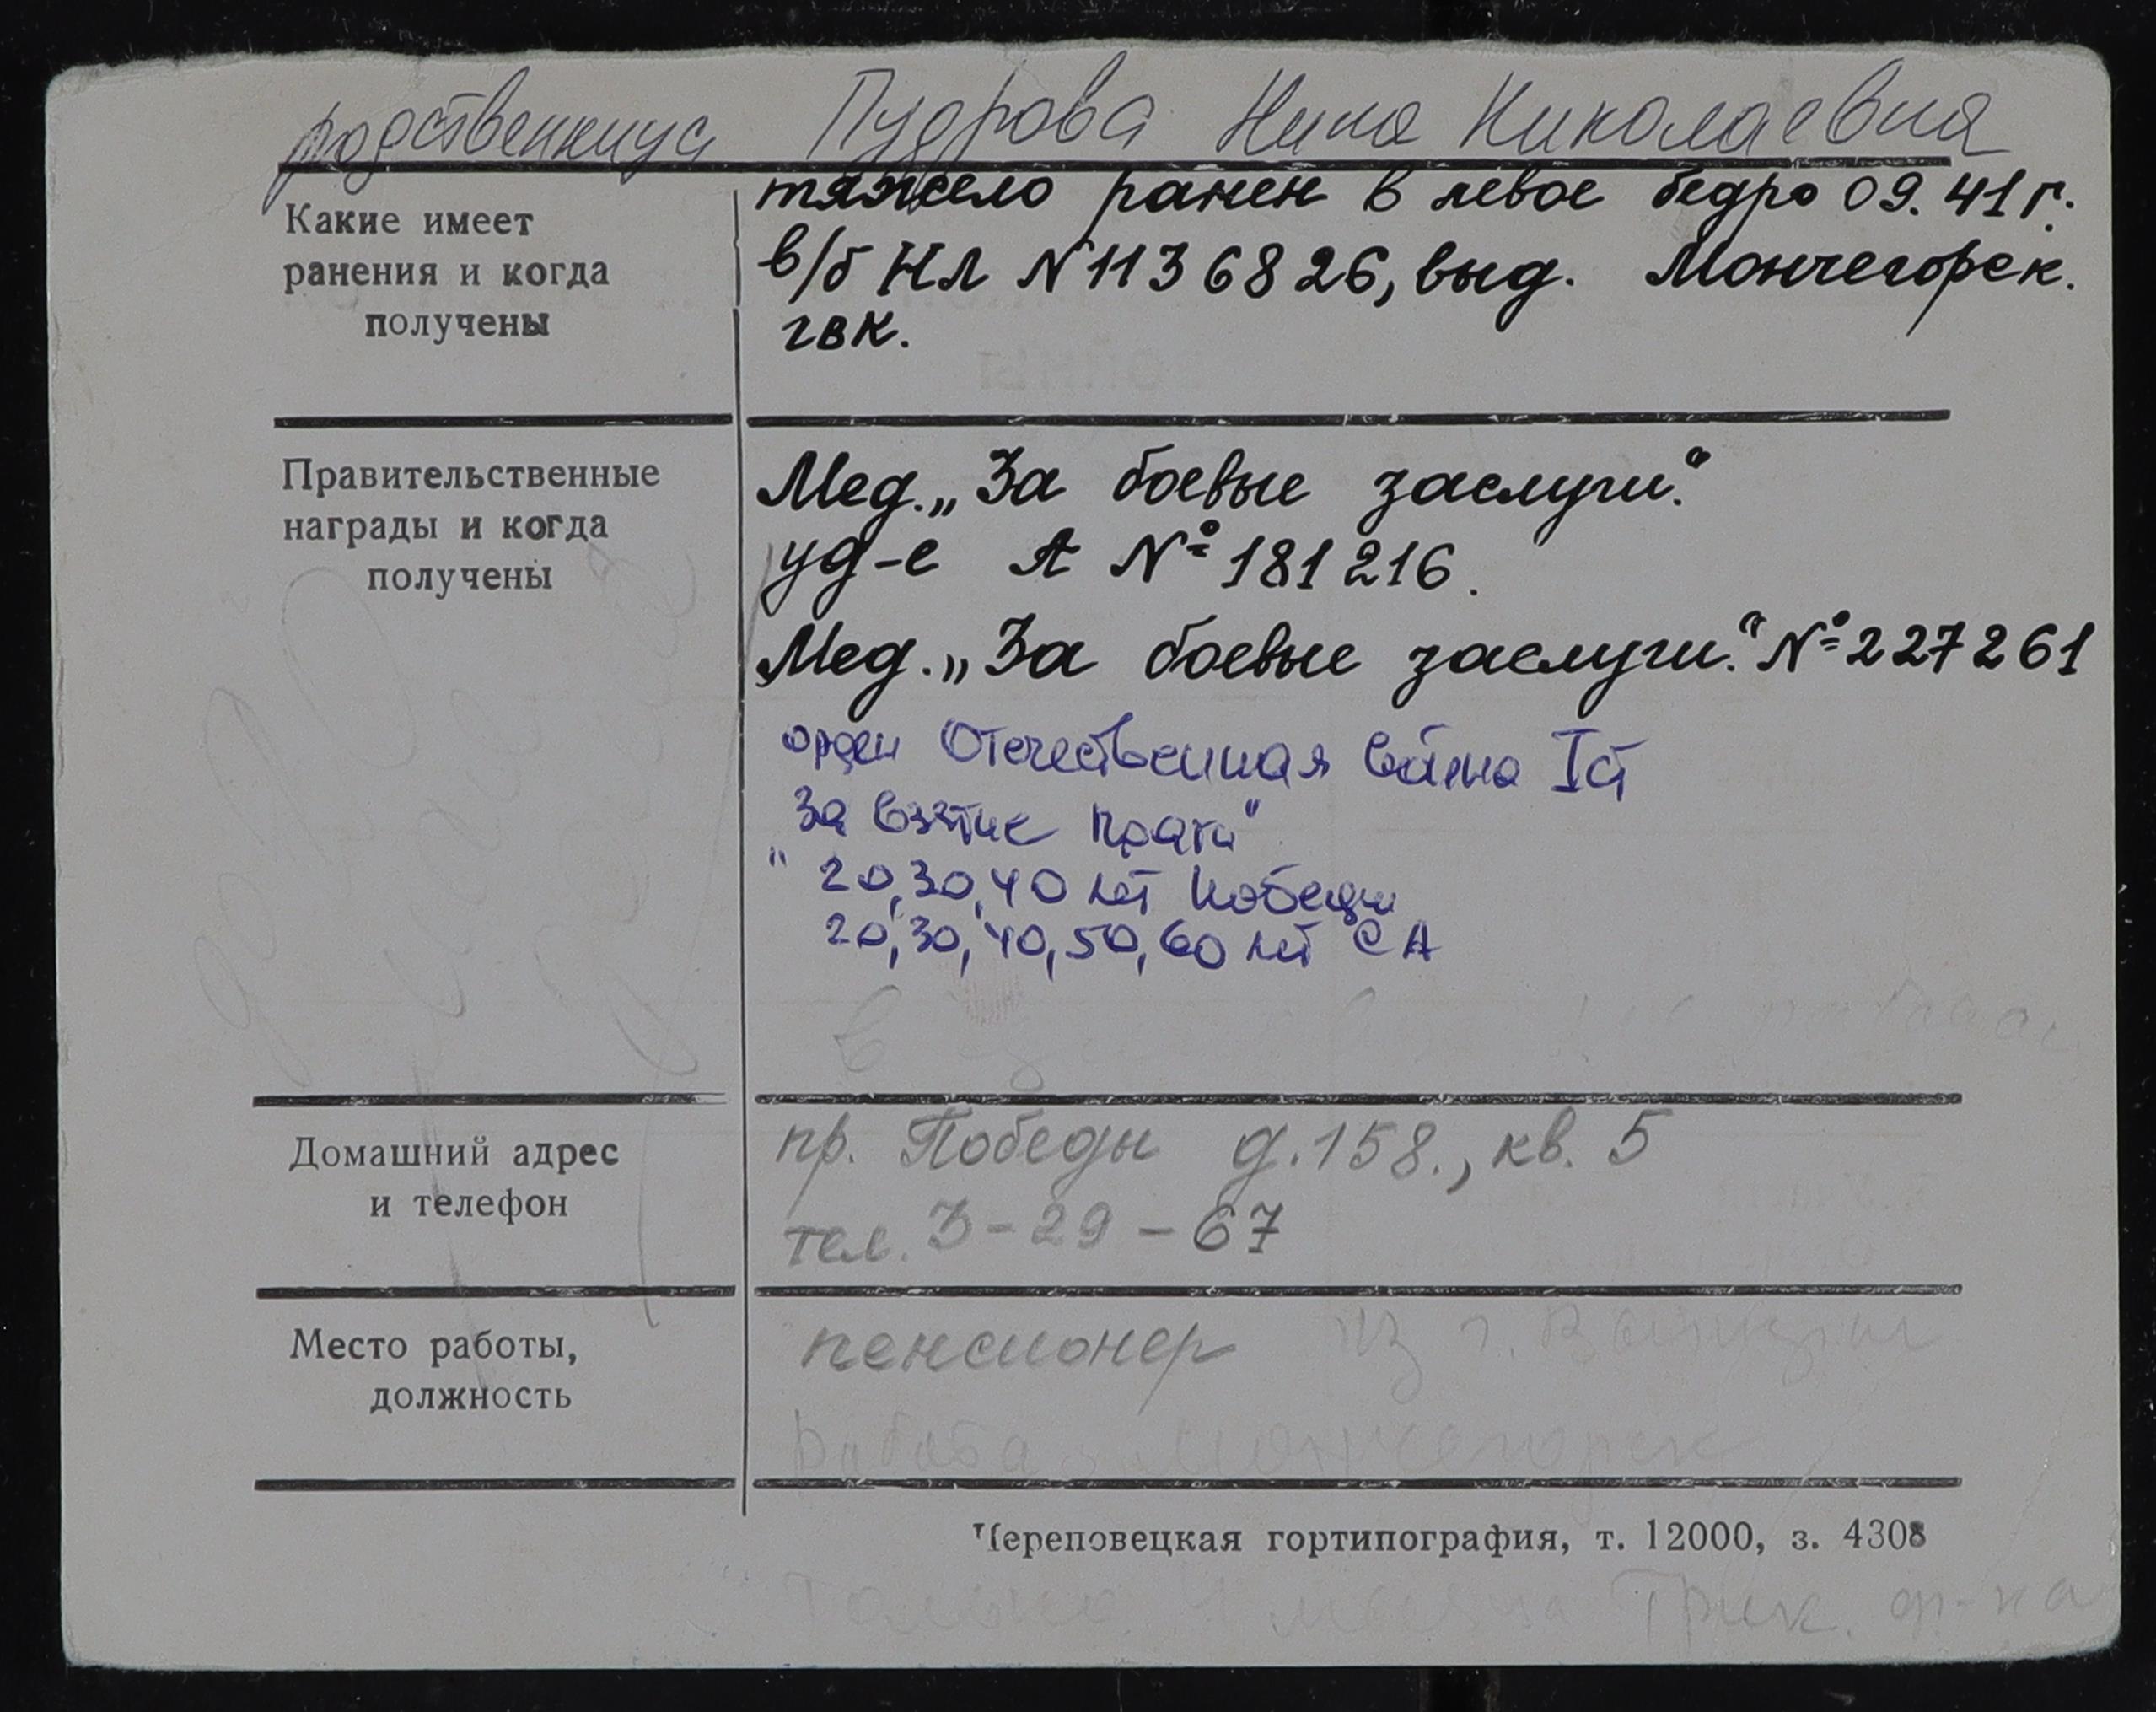 родственница Пудрова Нина Николаевна
Какие имеет
ранения и когда
получены
тяжело ранен в левое бедро 09.41 г.
в/б НЛ N 1136826, выд. Мончегорск.
гвк.
Правительственные
награды и когда
получены
Мед. „За боевые заслуги."
уд-е А № 181216.
Мед. „За боевые заслуги." № 227261
орден Отечественная война I ст
За взятие Праги"
" 20, 30, 40 лет Победы
20, 30, 40, 50, 60 лет СА
в
Домашний адрес
и телефон
пр. Победы д. 158., кв. 5
тел. 3-29-67
Место работы,
должность
пенсионер из г.
Работа Мончегорск
Череповецкая гортипография, т. 12000, з. 4308
Только Трик. ф-ка